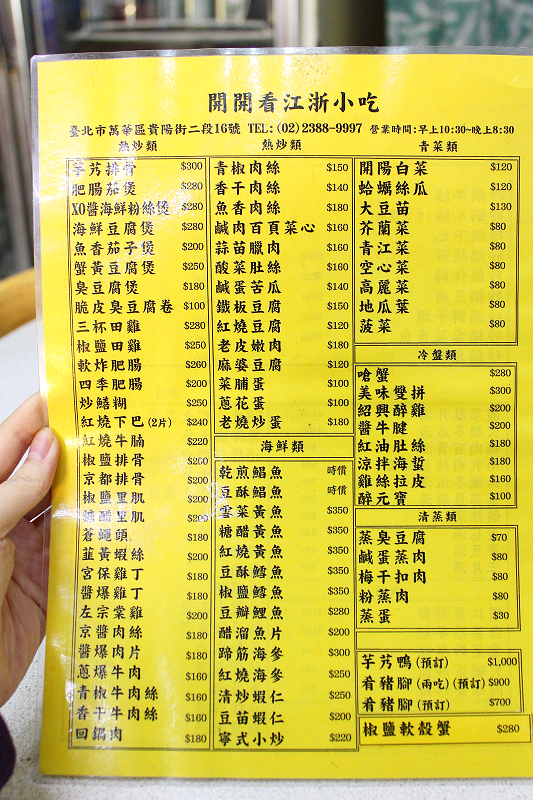 開開看江浙小吃
臺北市萬華區貴陽街二段16號 TEL:(02)2388-9997 營業時間:早上10:30~晚上8:30
熱炒類
芋艿排骨 $300
肥腸茄煲 $280
XO醬海鮮粉絲煲 $280
海鮮豆腐煲 $280
魚香茄子煲 $200
蟹黃豆腐煲 $250
臭豆腐煲 $180
脆皮臭豆腐卷 $100
三杯田雞 $280
椒鹽田雞 $250
軟炸肥腸 $260
四季肥腸 $200
炒鱔糊 $250
紅燒下巴(2片) $240
紅燒牛腩 $220
椒鹽排骨 $200
京都排骨 $200
椒鹽里肌 $200
糖醋里肌 $200
蒼蠅頭 $180
韮黃蝦絲 $200
宮保雞丁 $180
醬爆雞丁 $180
左宗棠雞 $200
京醬肉絲 $180
醬爆肉片 $180
蔥爆牛肉 $160
青椒牛肉絲 $160
香干牛肉絲 $160
回鍋肉 $180
熱炒類
青椒肉絲 $150
香干肉絲 $140
魚香肉絲 $180
鹹肉百頁菜心 $160
蒜苗臘肉 $160
酸菜肚絲 $160
鹹蛋苦瓜 $140
鐵板豆腐 $150
紅燒豆腐 $120
老皮嫩肉 $180
麻婆豆腐 $120
菜脯蛋 $100
蔥花蛋 $100
老燒炒蛋 $180
海鮮類
乾煎鯧魚 時價
豆酥鯧魚 時價
雪菜黃魚 $350
糖醋黃魚 $350
紅燒黃魚 $350
豆酥鱈魚 $350
椒鹽鱈魚 $350
豆瓣鯉魚 $280
醋溜魚片 $200
蹄筋海參 $300
紅燒海參 $250
清炒蝦仁 $250
豆苗蝦仁 $200
寧式小炒 $220
青菜類
開陽白菜 $120
蛤蠣絲瓜 $120
大豆苗 $130
芥蘭菜 $80
青江菜 $80
空心菜 $80
高麗菜 $80
地瓜葉 $80
菠菜 $80
冷盤類
嗆蟹 $280
美味雙拼 $300
紹興醉雞 $200
醬牛腱 $200
紅油肚絲 $180
涼拌海蜇 $180
雞絲拉皮 $160
醉元寶 $100
清蒸類
蒸臭豆腐 $70
鹹蛋蒸肉 $80
梅干扣肉 $80
粉蒸肉 $80
蒸蛋 $30
芋艿鴨(預訂) $1,000
肴豬腳(兩吃)(預訂) $900
肴豬腳(預訂) $700
椒鹽軟殼蟹 $280